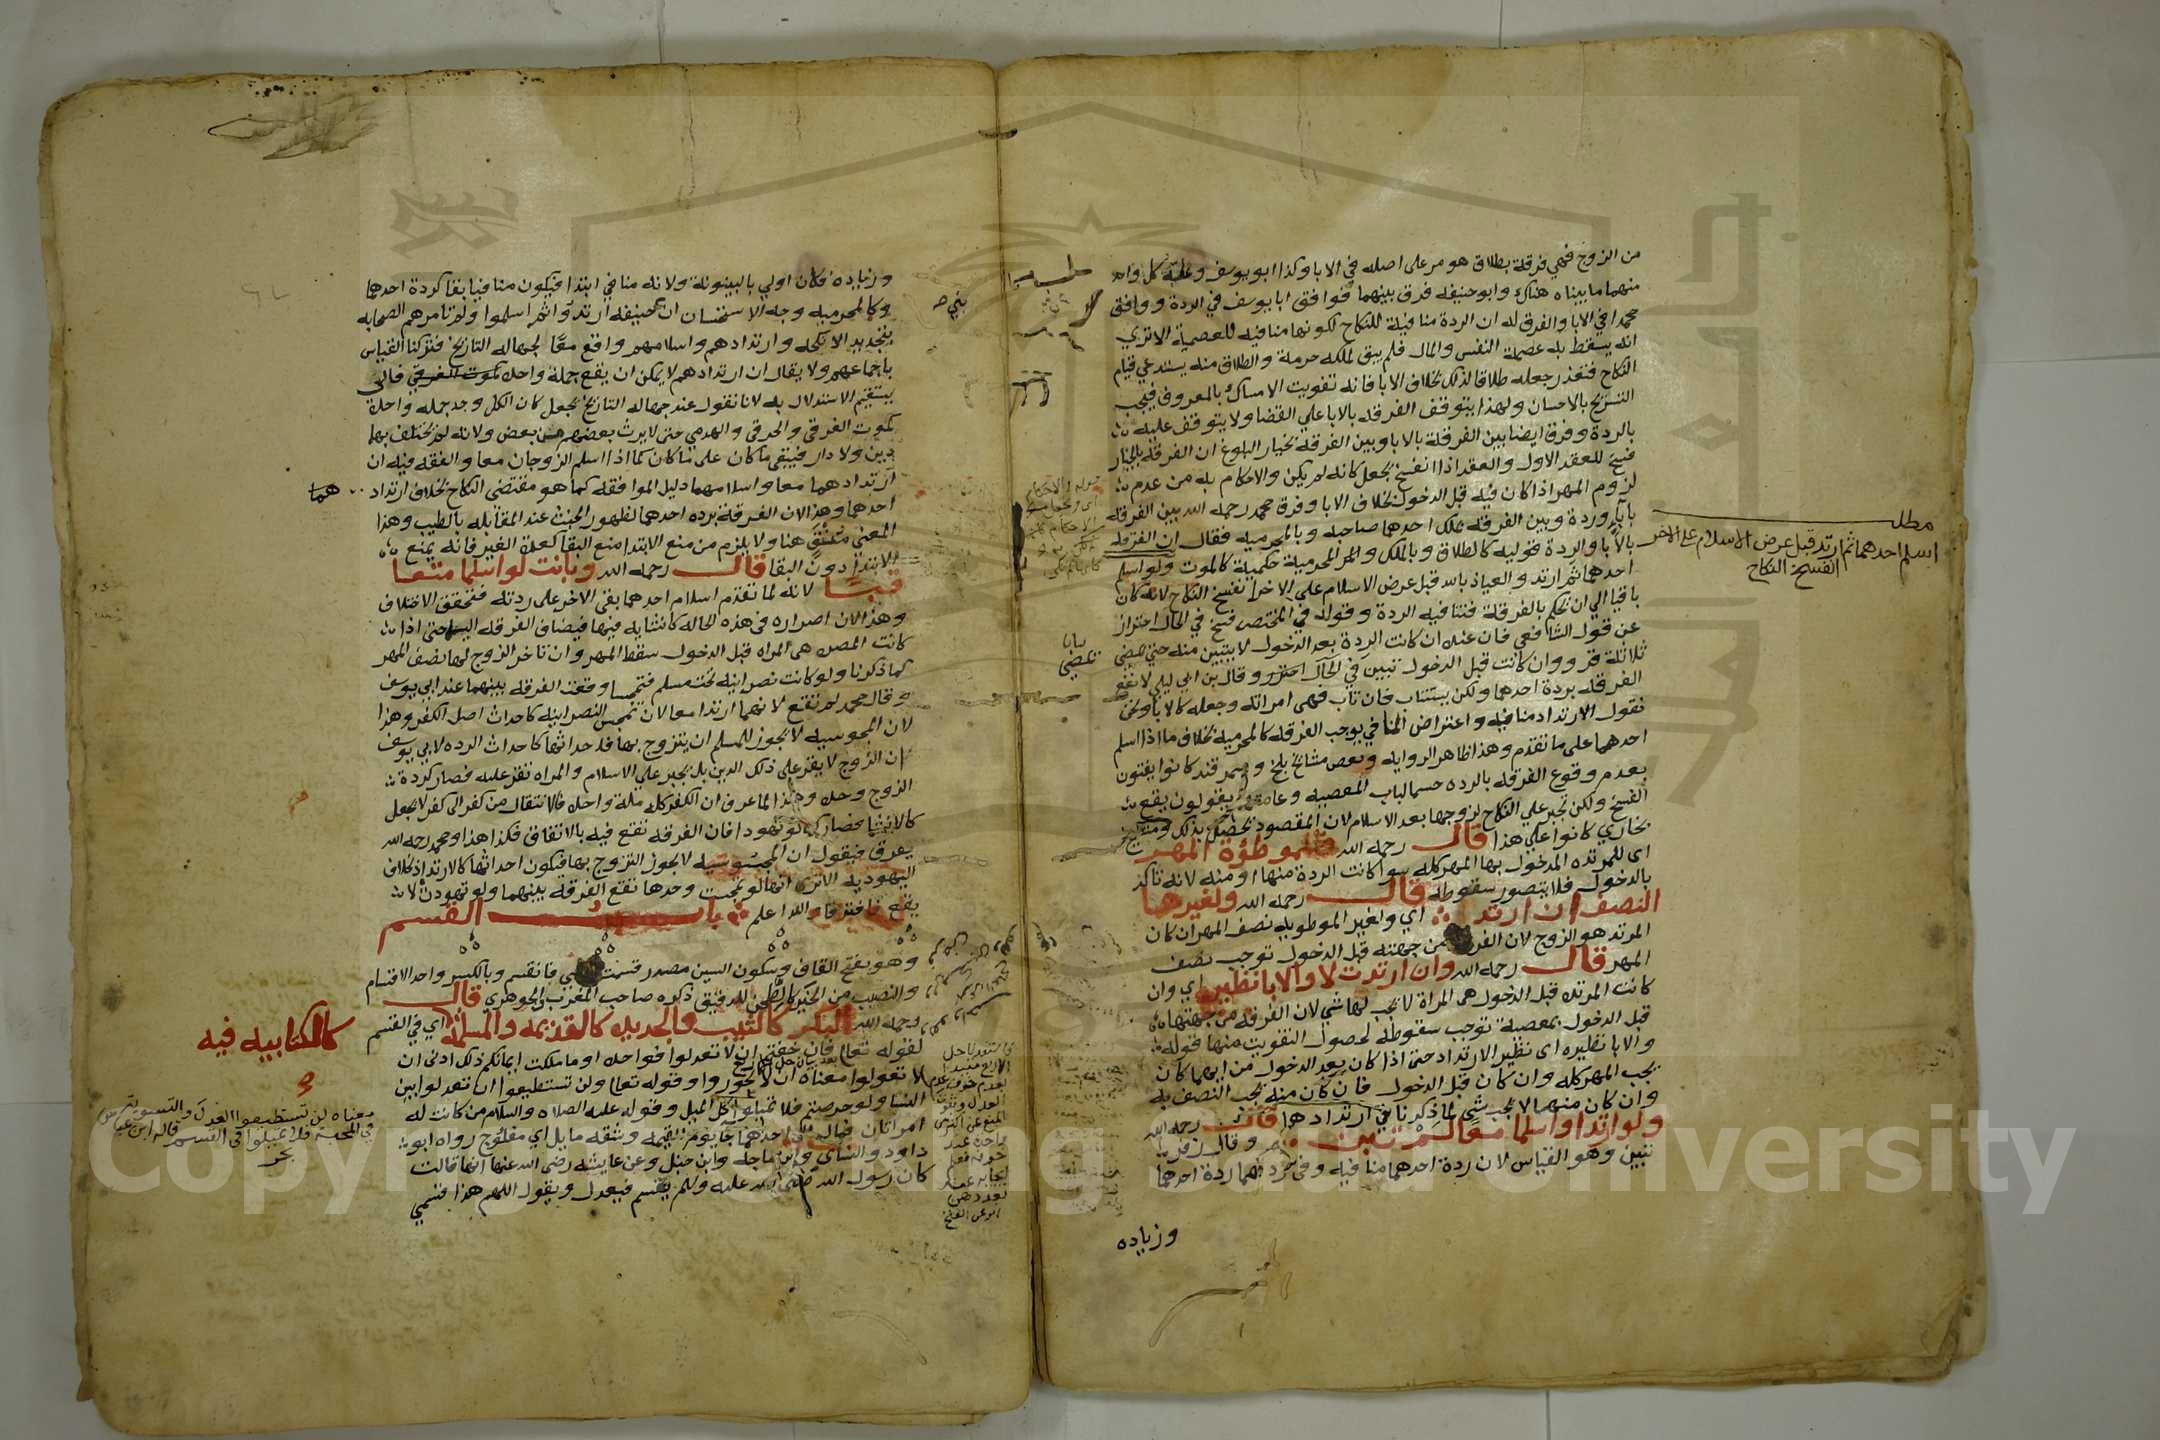 من الزوج فهي فرقة بطلاق هو مر على اصله في الابا وكذا ابو يوسف وعلية كل واحد
منهما ما بيناه هناك وابو حنيفه فرق بينهما فوافق ابا يوسف في الردة ووافق
محمدا في الابا والفرق له ان الردة منافية للنكاح لكونها منافيه للعصمة الا تري
انه يسقط به عصمة النفس والمال فلم يبق لملكه حرمة والطلاق منه يستدعي قيام
النكاح فتعذر جعله طلاقا لذلك بخلاف الابا فانه تفويت الامساك بالمعروف فيجب
التسريح بالاحسان ولهذا يتوقف الفرقه بالابا على القضا ولا يتوقف عليه
بالردة وفرق ايضا بين الفرقة بالابا وبين الفرقه بخيار البلوغ ان الفرقه بالخيار
فسخ للعقد الاول والعقد اذا انفسخ يجعل كانه لم يكن والاحكام به من عدم
لزوم المهر اذا كان فيه قبل الدخول بخلاف الابا وفرق محمد رحمه الله بين الفرقه
بابا وردة وبين الفرقه بملك احدهما صاحبه وبالمحرميه فقال ان الفرقه
بالابا والردة قوليه كالطلاق وبالملك والمحرمية حكمية كالموت ولو اسلم
احدهما ثم ارتد والعياذ بالله قبل عرض الاسلام على الاخر انفسخ النكاح لانه كان
باقيا الي ان نحكم بالفرقة فتنافيه الردة وقوله في المختصر فسخ في الحال احتراز
عن قول الشافعي فان عنده ان كانت الردة بعد الدخول لا يتبين منه حتي تمضي
ثلاثة قروو وان كانت قبل الدخول تبين في الحال وقال بن ابي ليلي لا تقع
الفرقه بردة احدهما ولكن يستتاب فان تاب فهي امراته وجعله كالابا ونحن
نقول الارتداد منافيه واعتراض المنافي يوجب الفرقه كالمحرميه بخلاف ما اذا اسلم
احدهما على ما تقدم وهذا ظاهر الروايه وبعض مشائخ بلخ وسمرقند كانوا يفتون
بعدم وقوع الفرقه بالرده حسما لباب المعصيه وعامتهم يقولون يقع
الفسخ ولكن تجبر على النكاح لزوجها بعد الاسلام لان المقصود يحصل بذلك ومشايخ
بخاري كانوا على هذا قال رحمه الله فللموطؤة المهر
اى للمرتده المدخول بها المهر كله سوا كانت الردة منها او منه لانه تاكد
بالدخول فلا يتصور سقوطه قال رحمه الله ولغيرها
النصف ان ارتد اي ولغير الموطويه نصف المهر ان كان
المرتد هو الزوج لان الفرقه من جهته قبل الدخول توجب نصف
المهر قال رحمه الله وان ارتدت لا والابا نظيره اي وان
كانت المرتده قبل الدخول هي المراة لا يجب لها شي لان الفرقه من جهتها
قبل الدخول بمعصية توجب سقوطه لحصول التفويت منها قوله
والابا نظيره اى نظير الارتداد حتى اذا كان بعد الدخول من ايهما كان
يجب المهر كله وان كان قبل الدخول فان كان منه يجب النصف به
وان كان منهما لا يجب شي لما ذكرنا في ارتدادها قال رحمه الله
ولو ارتدا واسلما معا لم تبن وقال زفر
تبين وهو القياس لان ردة احدهما منافيه وفي ردتهما ردة احدهما
وزياده
مطلب
اسلم احدهما ثم ارتد قبل عرض الاسلام على الاخر
انفسخ النكاح
وزياده فكان اولي بالبينونة ولانه منافي ابتدا فيكون منافيا بقا كردة احدهما
وكالمحرميه وجه الاستحسان ان بني حنيفه ارتدوا ثم اسلموا ولم تامرهم الصحابه
بتجديد الانكحه وارتدادهم واسلامهم واقع معا لجهالة التاريخ فتركنا القياس
باجماعهم ولا يقال ان ارتدادهم لا يمكن ان يقع جملة واحده فاني
يستقيم الاستدلال به لانا نقول عند جهالة التاريخ يجعل كان الكل وجد جمله واحدة
كموت الغرقي والحرقي والهدمي حتى لا يرث بعضهم من بعض ولانه لم يختلف بهما
دين ولا دار فيبقى ما كان على ما كان كما اذا اسلم الزوجان معا والفقه فيه ان
ارتدادهما معا واسلامهما دليل الموافقه كما هو مقتضى النكاح بخلاف ارتداد
هما
احدهما وهذا لان الفرقة برده احدهما لظهور الخبث عند المقابله بالطيب وهذا
المعني منتفي هنا ولا يلزم من منع الابتدا منع البقا كعدة الغير فانه يمنع
الابتدا دون البقا قال رحمه الله وبانت لو اسلما متعا
قبـا لانه لما تقدم اسلام احدهما بقى الاخر على ردته فتحقق الاختلاف
وهذا لان اصراره في هذه الحاله كانشايه فيها فيضاف الفرقه اليه حتى اذا
كانت المصره هي المراه قبل الدخول سقط المهر وان تاخر الزوج لها نصف المهر
كما ذكرنا ولو كانت نصرانيه تحت مسلم فتمجسا وقعت الفرقه بينهما عند ابي يوسف
وقال محمد لم تقع لانهما ارتدا معا لان تمجس النصرانيه كاحداث اصل الكفر وهذا
لان المجوسيه لا يجوز للمسلم ان يتزوج بها فاحداثها كاحداث الرده لابي يوسف
ان الزوج لا يقر على ذلك الدين بل يجبر على الاسلام والمراه تقر عليه فصار كردة
الزوج وحده وهذا لما عرف ان الكفر كله ملة واحدة فالانتقال من كفر الى كفر لا يجعل
كالانشا فصار كما لو تهودا فان الفرقه تقع فيه بالاتفاق فكذا هذا ومحمد رحمه الله
يفرق فيقول ان المجوسيه لا يجوز التزوج بها فيكون احداثها كالارتداد بخلاف
اليهوديه الا ترى انها لو تمجست وحدها تقع الفرقه بينهما ولو تهودت لا
يقع فافترقا والله اعلم باب القسم
وهو بفتح القاف وسكون السين مصدر قسمت الشي فانقسم وبالكسر واحد الاقسام
والنصيب من الخير كالطحن للدقيق ذكره صاحب المغرب والجوهري قال
رحمه الله البكر كالثيب والجديده كالقديمه والمسلمة اي في القسم
كالكتابيه فيه
لقوله تعالى فان خفتم ان لا تعدلوا فواحدة او ما ملكت ايمانكم ذلك ادنى ان
لا تعولوا معناه ان لا تجوروا وقوله تعالى ولن تستطيعوا ان تعدلوا بين
النسا ولو حرصتم فلا تميلوا كل الميل وقوله عليه الصلاه والسلام من كانت له
امراتان فمال الى احدهما جا يوم القيمه وشقه مايل اي مفلوج رواه ابو
داود والنساى وابن ماجه وابن حنبل وعن عايشه رضى الله عنها انها قالت
كان رسول الله صلى الله عليه وسلم يقسم فيعدل ويقول اللهم هذا قسمي
معناه لن تستطيعوا العدل والتسوية
في المحبة فلا تميلوا في القسم قاله ابن عباس
بحر
Copyright © King Saud University